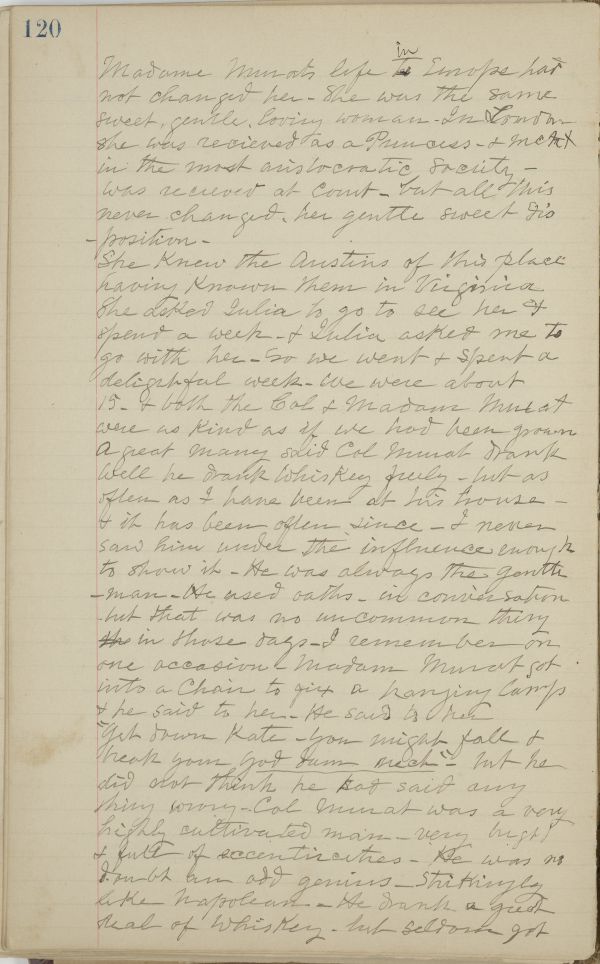 120
Madame Murats life in Europe had
not changed her - She was the same
sweet, gentle, loving woman - In London
she was recieved as a Princess - & met
in the most aristocratic Society -
was recieved at Court - but all this
never changed, her gentle sweet dis
-position -
She Knew the Austins of this place
having Known them in Virginia
She asked Julia to go to see her &
spend a week - & Julia asked me to
go with her - So we went & Spent a
delightful week - We were about
15 - & both the Col & Madam Murat
were as Kind as if we had been grown
A great many said Col Murat drank
Well he drank Whiskey freely - but as
often as I have been at his house -
& it has been often since - I never
saw him under the influence enough
to show it - He was always the gentle
-man - He used oaths - in conversation
but that was no uncommon thing
in those days - I remember on
one occasion - Madam Murat got
into a Chair to fix a hanging Lamp
& he said to her - He said to her
"Get down Kate - You might fall &
break your God dam neck" - but he
did not think he had said any
thing wrong - Col Murat was a very
highly cultivated man - very bright
& full of eccentricities - He was no
doubt an odd genius - Strikingly
like Napolean - He drank a great
deal of Whiskey - but seldom got